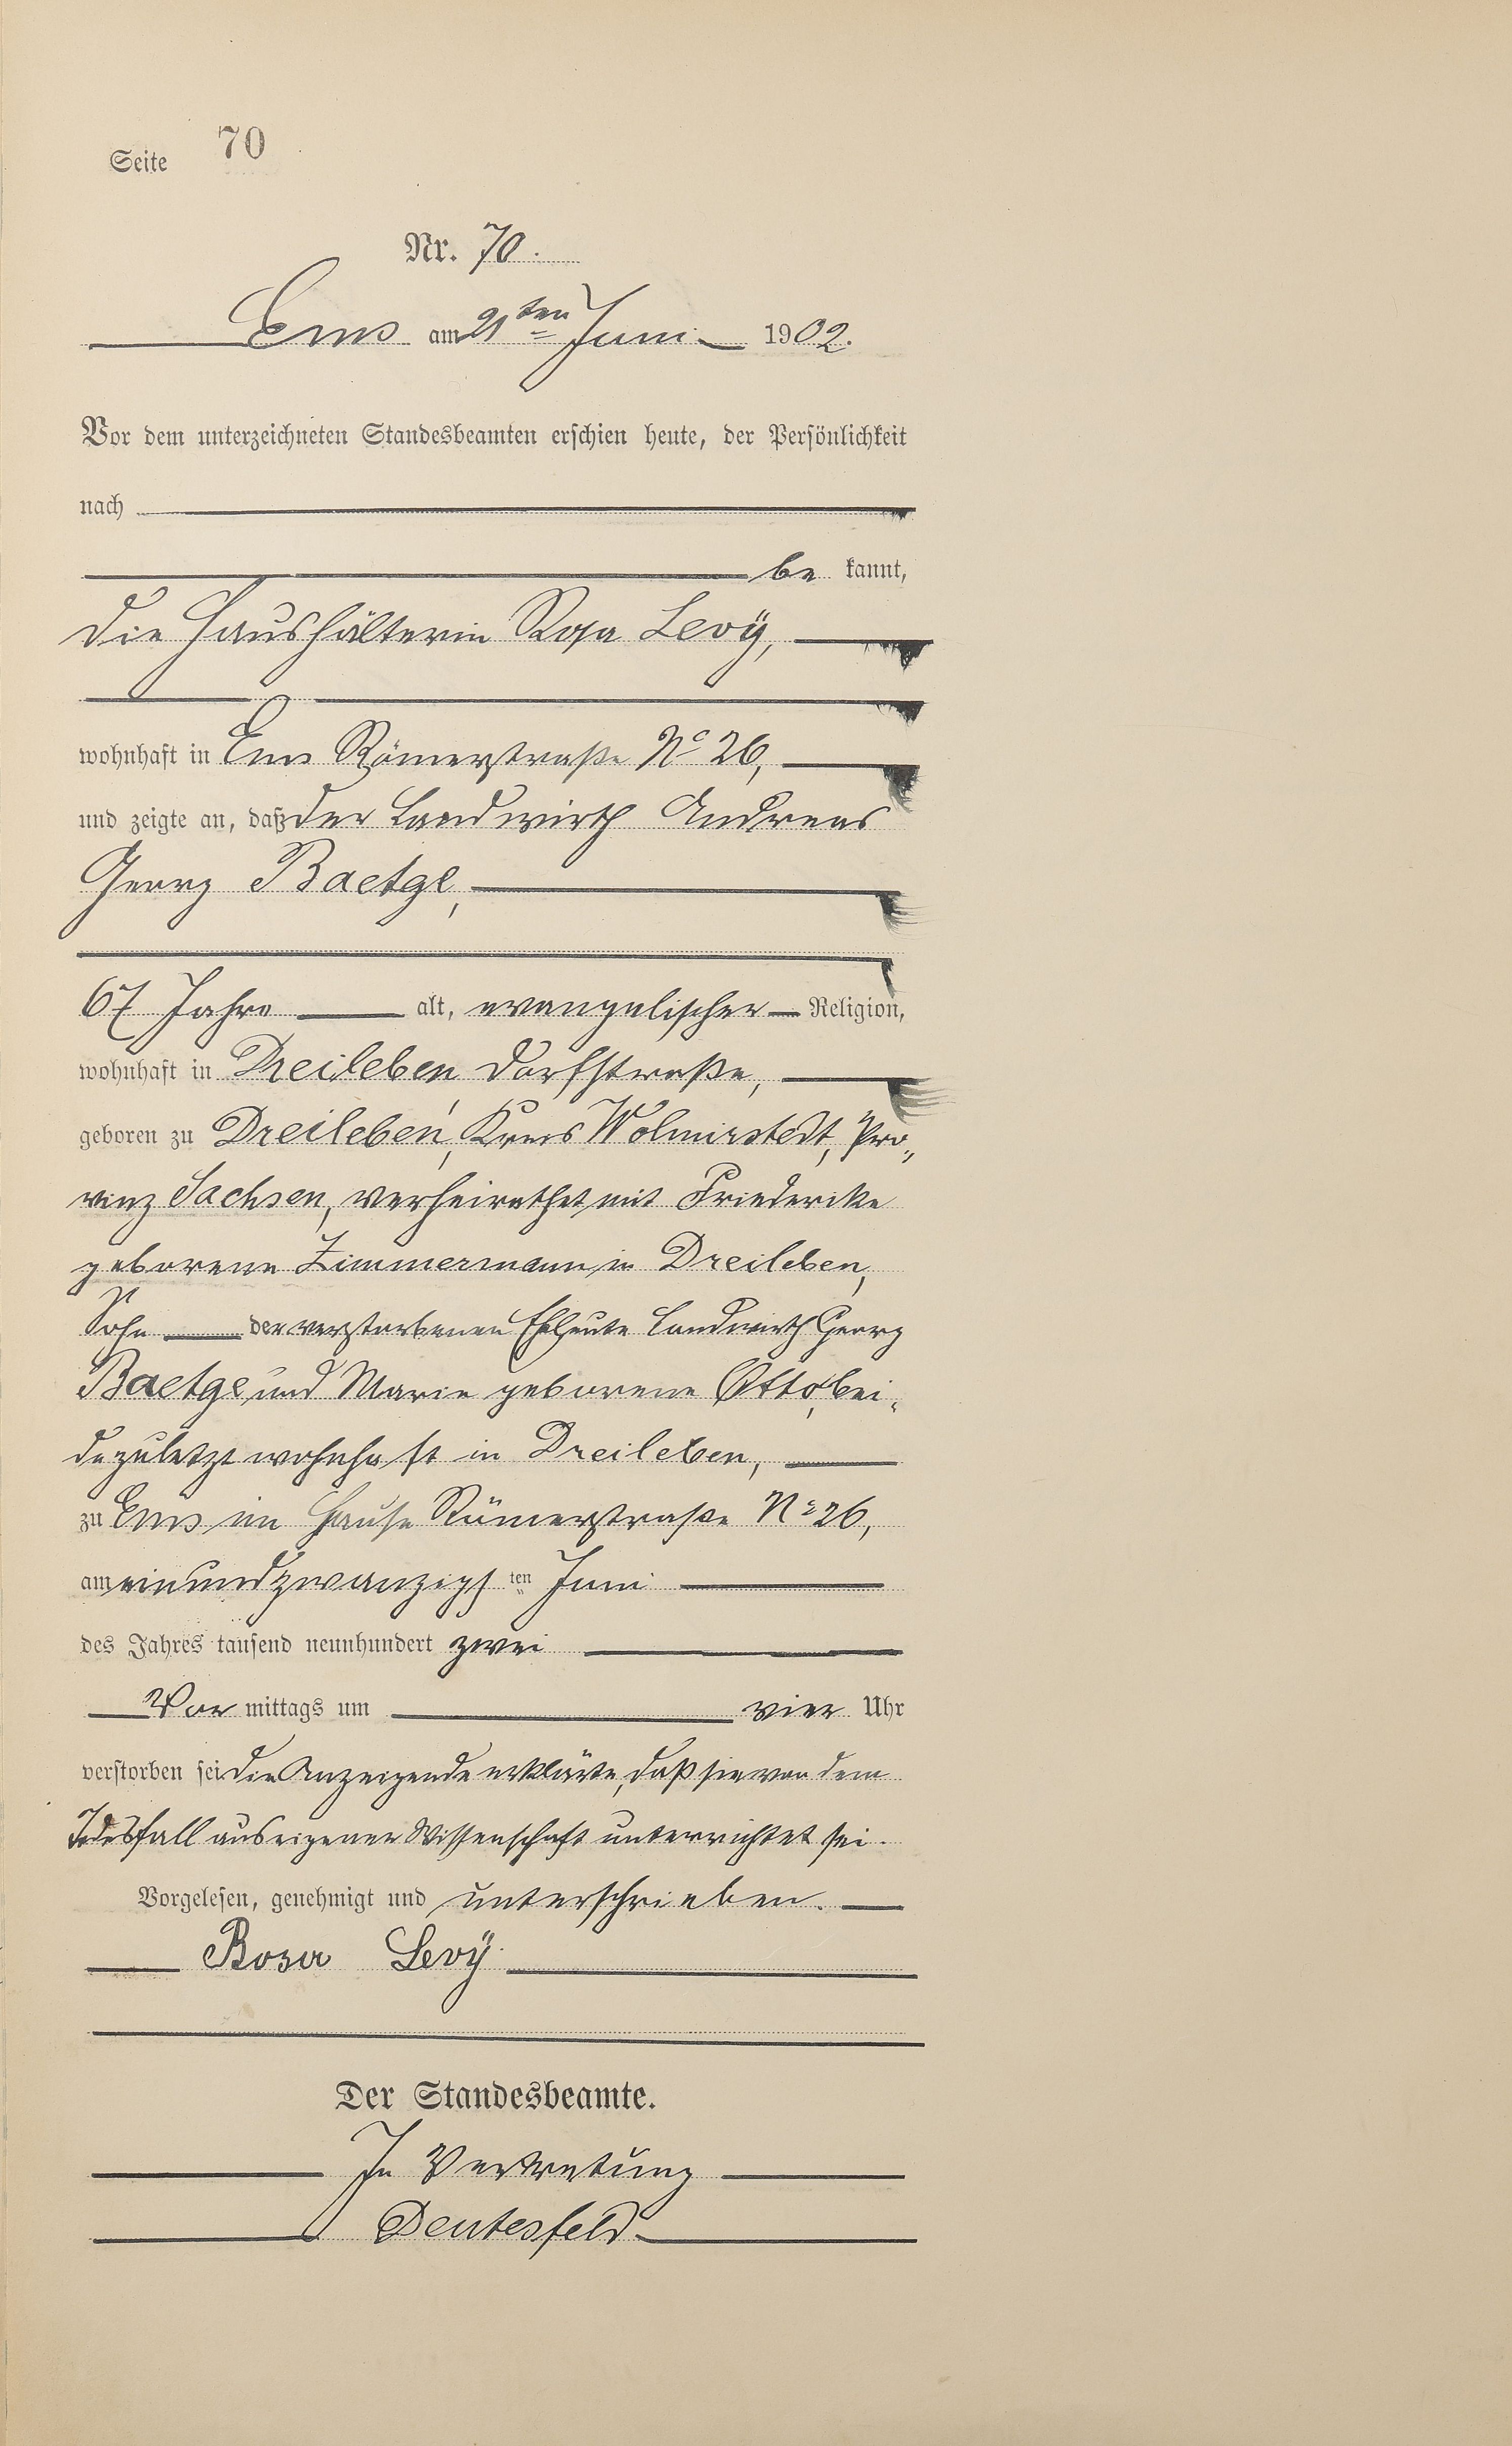 Seite 70
Nr. 70.
Ems am 21ten Juni 1902.
Vor dem unterzeichneten Standesbeamten erschien heute, der Persönlichkeit
nach
be kannt,
die Haushälterin Rosa Levÿ,
wohnhaft in Ems Römerstraße No 26,
und zeigte an, daß der Landwirth Andreas
Georg Baetge,
67 Jahre alt, evangelischer Religion,
wohnhaft in Dreileben, Dorfstraße,
geboren zu Dreileben, Kreis Wolmirstedt, Pro„
vinz Sachsen, verheirathet mit Friederike
geborene Zimmermann in Dreileben,
Sohn der verstorbenen Eheleute Landwirth Georg
Baetge und Marie geborene Otto, bei„
de zuletzt wohnhaft in Dreileben,
zu Ems im Hause Römerstraße No 26,
am einundzwanzigs ten Juni
des Jahres tausend neunhundert zwei
Vor mittags um vier Uhr
verstorben sei. Die Anzeigende erklärte, daß sie von dem
Todesfall aus eigener Wissenschaft unterrichtet sei.
Vorgelesen, genehmigt und unterschrieben.
Rosa Levÿ.
Der Standesbeamte.
In Vertretung
Deutesfeld